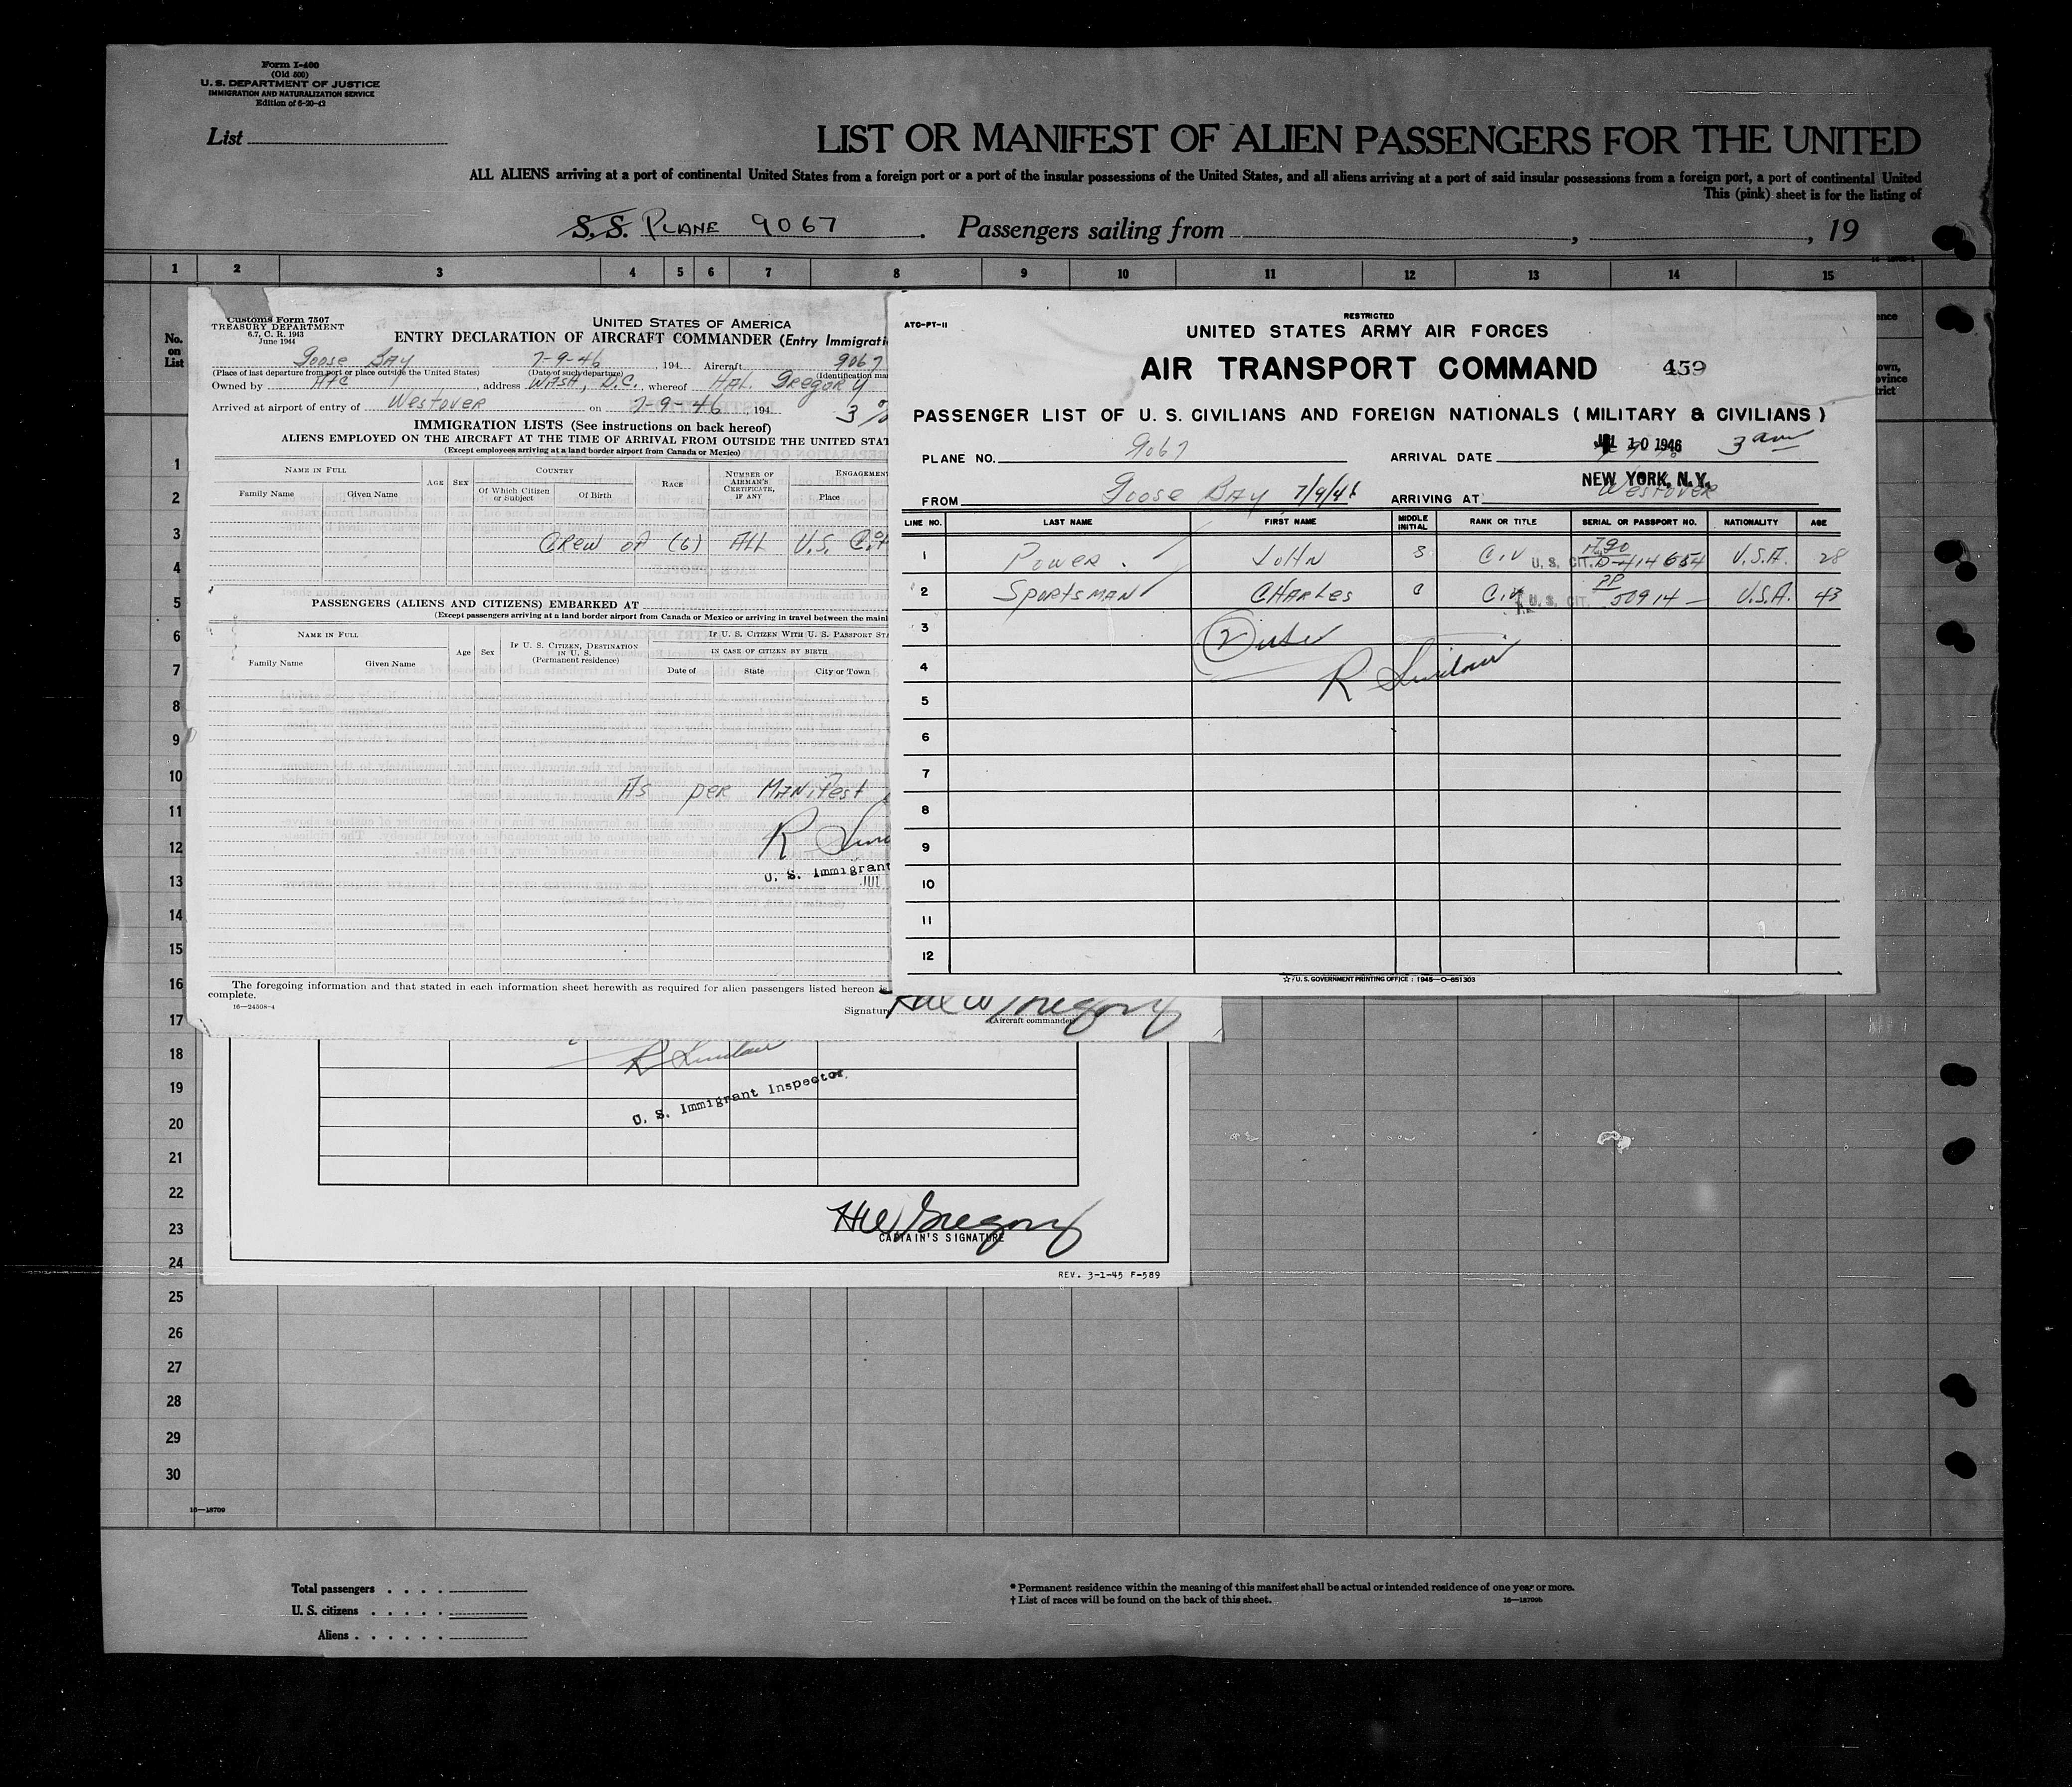 Form I-400
(Old 500)
U. S. DEPARTMENT OF JUSTICE
IMMIGRATION AND NATURALIZATION SERVICE
Edition of 6-20-42
List
LIST OR MANIFEST OF ALIEN PASSENGERS FOR THE UNITED
ALL ALIENS arriving at a port of continental United States from a foreign port or a port of the insular possessions of the United States, and all aliens arriving at a port of said insular possessions from a foreign port, a port of continental United
This (pink) sheet is for the listing of
S. S. PLANE 9067 . Passengers sailing from , , 19
1 2 3 4 5 6 7 8 9 10 11 12 13 14 15
No. on List
Customs Form 7507
TREASURY DEPARTMENT
6.7, C. R. 1943
June 1944
UNITED STATES OF AMERICA
ENTRY DECLARATION OF AIRCRAFT COMMANDER (Entry Immigrati
Goose Bay 7-9-46 , 194 Aircraft 9067
(Place of last departure from port or place outside the United States) (Date of such departure) (Identification ma
Owned by ATC , address WASH, D.C. whereof HAL GREGORY
Arrived at airport of entry of Westover on 7-9-46 , 194
IMMIGRATION LISTS (See instructions on back hereof)
ALIENS EMPLOYED ON THE AIRCRAFT AT THE TIME OF ARRIVAL FROM OUTSIDE THE UNITED STAT
(Except employees arriving at a land border airport from Canada or Mexico)
NAME IN FULL AGE SEX COUNTRY RACE NUMBER OF AIRMAN'S CERTIFICATE, IF ANY ENGAGEMENT
Family Name Given Name Of Which Citizen or Subject Of Birth Place
Crew of (6) ALL U.S. Cit
PASSENGERS (ALIENS AND CITIZENS) EMBARKED AT
(Except passengers arriving at a land border airport from Canada or Mexico or arriving in travel between the mainl
NAME IN FULL Age Sex IF U. S. CITIZEN, DESTINATION IN U. S. (Permanent residence) IF U. S. CITIZEN WITH U. S. PASSPORT STA
IN CASE OF CITIZEN BY BIRTH
Family Name Given Name Date of State City or Town
As per Manifest
R Sinc
U. S. Immigrant
JUL
The foregoing information and that stated in each information sheet herewith as required for alien passengers listed hereon is
complete.
16—24508-4
Signature Hal W Gregory
(Aircraft commander)
R Sinclair
U. S. Immigrant Inspector.
Hal Gregory
CAPTAIN'S SIGNATURE
REV. 3-1-45 F-589
ATC-PT-11
RESTRICTED
UNITED STATES ARMY AIR FORCES
AIR TRANSPORT COMMAND 459
PASSENGER LIST OF U. S. CIVILIANS AND FOREIGN NATIONALS ( MILITARY & CIVILIANS )
PLANE NO. 9067 ARRIVAL DATE JUL 10 1946 3 am
FROM Goose Bay 7/9/46 ARRIVING AT NEW YORK, N.Y. Westover
LINE NO. LAST NAME FIRST NAME MIDDLE INITIAL RANK OR TITLE SERIAL OR PASSPORT NO. NATIONALITY AGE
1 Power JOHN S Civ U. S. CIT. AGO D-414654 U.S.A. 28
2 SPORTSMAN CHARLES C Civ U. S. CIT. PP 50914 U.S.A. 43
3
4 R Sinclair
5
6
7
8
9
10
11
12
☆ U. S. GOVERNMENT PRINTING OFFICE : 1945—O-651303
1
2
3
4
5
6
7
8
9
10
11
12
13
14
15
16
17
18
19
20
21
22
23
24
25
26
27
28
29
30
16—18709
Total passengers
U. S. citizens
Aliens
* Permanent residence within the meaning of this manifest shall be actual or intended residence of one year or more.
† List of races will be found on the back of this sheet.
16—18709b